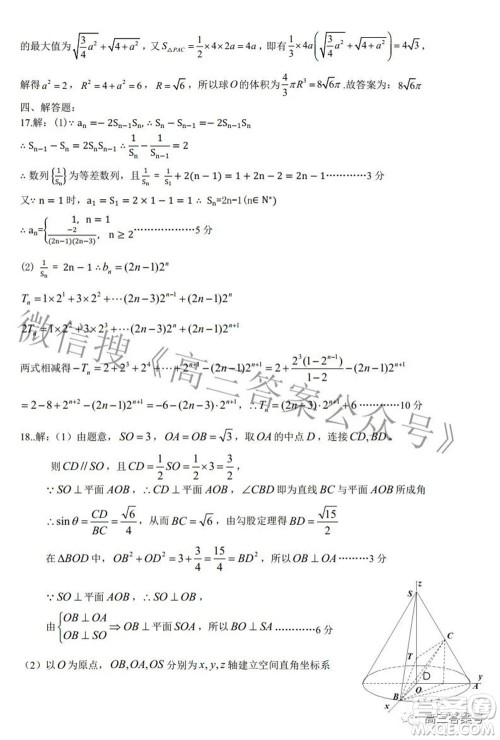 的最大值为√(3/4 a²)+√(4+a²)，又S△PAC=1/2×4×2a=4a，即有1/3×4a(√(3/4 a²)+√(4+a²))=4√3，
解得a²=2，R²=4+a²=6，R=√6，所以球O的体积为4/3 πR³=8√6π.故答案为：8√6π
四、解答题：
17.解：(1)∵ aₙ=－2Sₙ₋₁Sₙ,∴ Sₙ－Sₙ₋₁=－2SₙSₙ₋₁
∴ Sₙ₋₁－Sₙ=2SₙSₙ₋₁ ∴ 1/Sₙ－1/Sₙ₋₁=2
∴ 数列{1/Sₙ}为等差数列，且1/Sₙ = 1/S₁+2(n－1)=1+2n－2=2n－1……………3 分
又∵ n=1 时，a₁=S₁=2×1－1=1 ∴ Sₙ=2n-1(n∈ N*)
∴ aₙ={1, n=1
－2/((2n－1)(2n－3)), n≥2 ……………5 分
(2) 1/Sₙ = 2n－1 ∴bₙ=(2n－1)2ⁿ
Tₙ=1×2¹+3×2²+⋯(2n－3)2ⁿ⁻¹+(2n－1)2ⁿ
2Tₙ=1×2²+3×2³+⋯(2n－3)2ⁿ+(2n－1)2ⁿ⁺¹
两式相减得－Tₙ=2+2³+2⁴+⋯+2ⁿ⁺¹－(2n－1)2ⁿ⁺¹=2+2³(1－2ⁿ⁻¹)/(1－2)
=2－8+2ⁿ⁺²－(2n－1)2ⁿ⁺¹=－6－(2n－3)·2ⁿ⁺¹，∴Tₙ=(2n－3)·2ⁿ⁺¹+6…………10 分
18..解：（1）由题意，SO=3，OA=OB=√3，取OA的中点D，连接CD,BD，
则CD//SO，且CD=1/2 SO=1/2×3=3/2，
∵SO⊥平面AOB，∴CD⊥平面AOB，∠CBD即为直线BC与平面AOB所成角
∴sinθ=CD/BC=√6/4，从而BC=√6，由勾股定理得BD=√15/2
在△BOD中，OB²+OD²=3+3/4=15/4=BD²，所以OB⊥OA………3 分
∵SO⊥平面AOB，∴SO⊥OB，
由{OB⊥OA
OB⊥SO⇒OB⊥平面SOA，所以BO⊥SA…………6 分
（2）以O为原点，OB,OA,OS分别为x,y,z轴建立空间直角坐标系
z
S
C
T
D
O
A
y
B
x
微信搜《高三答案公众号》
高三答案号